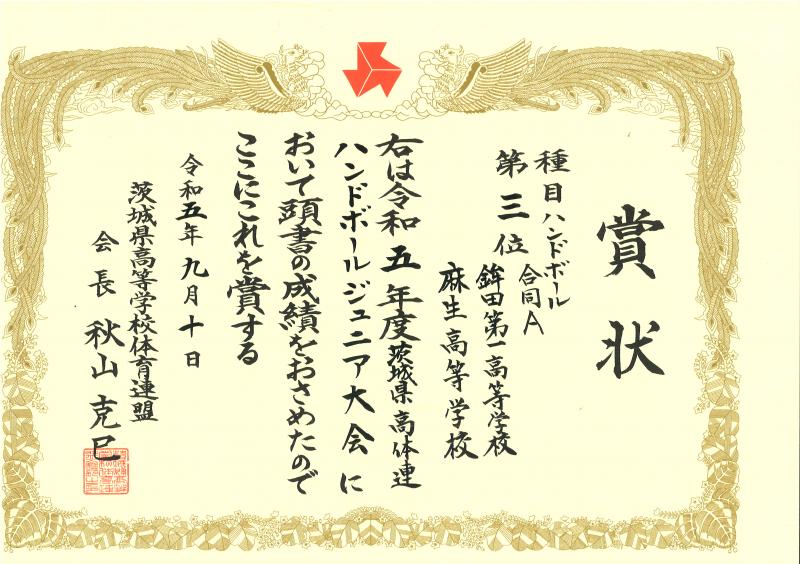 賞状
種目ハンドボール
合同A
第三位
鉾田第一高等学校
麻生高等学校
右は令和五年度茨城県高体連
ハンドボールジュニア大会に
おいて頭書の成績をおさめたので
ここにこれを賞する
令和五年九月十日
茨城県高等学校体育連盟
会長 秋山克巳